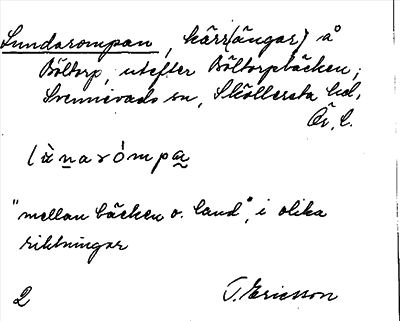 Lundarompan, kärr(ängar) å
Böltorp, utefter Böltorpbäcken;
Svennevads sn, Sköllersta hd,
Ör. l.
lὰn̠arómpa̰
"mellan bäcken o. land", i olika
riktningar
2 T. Ericsson